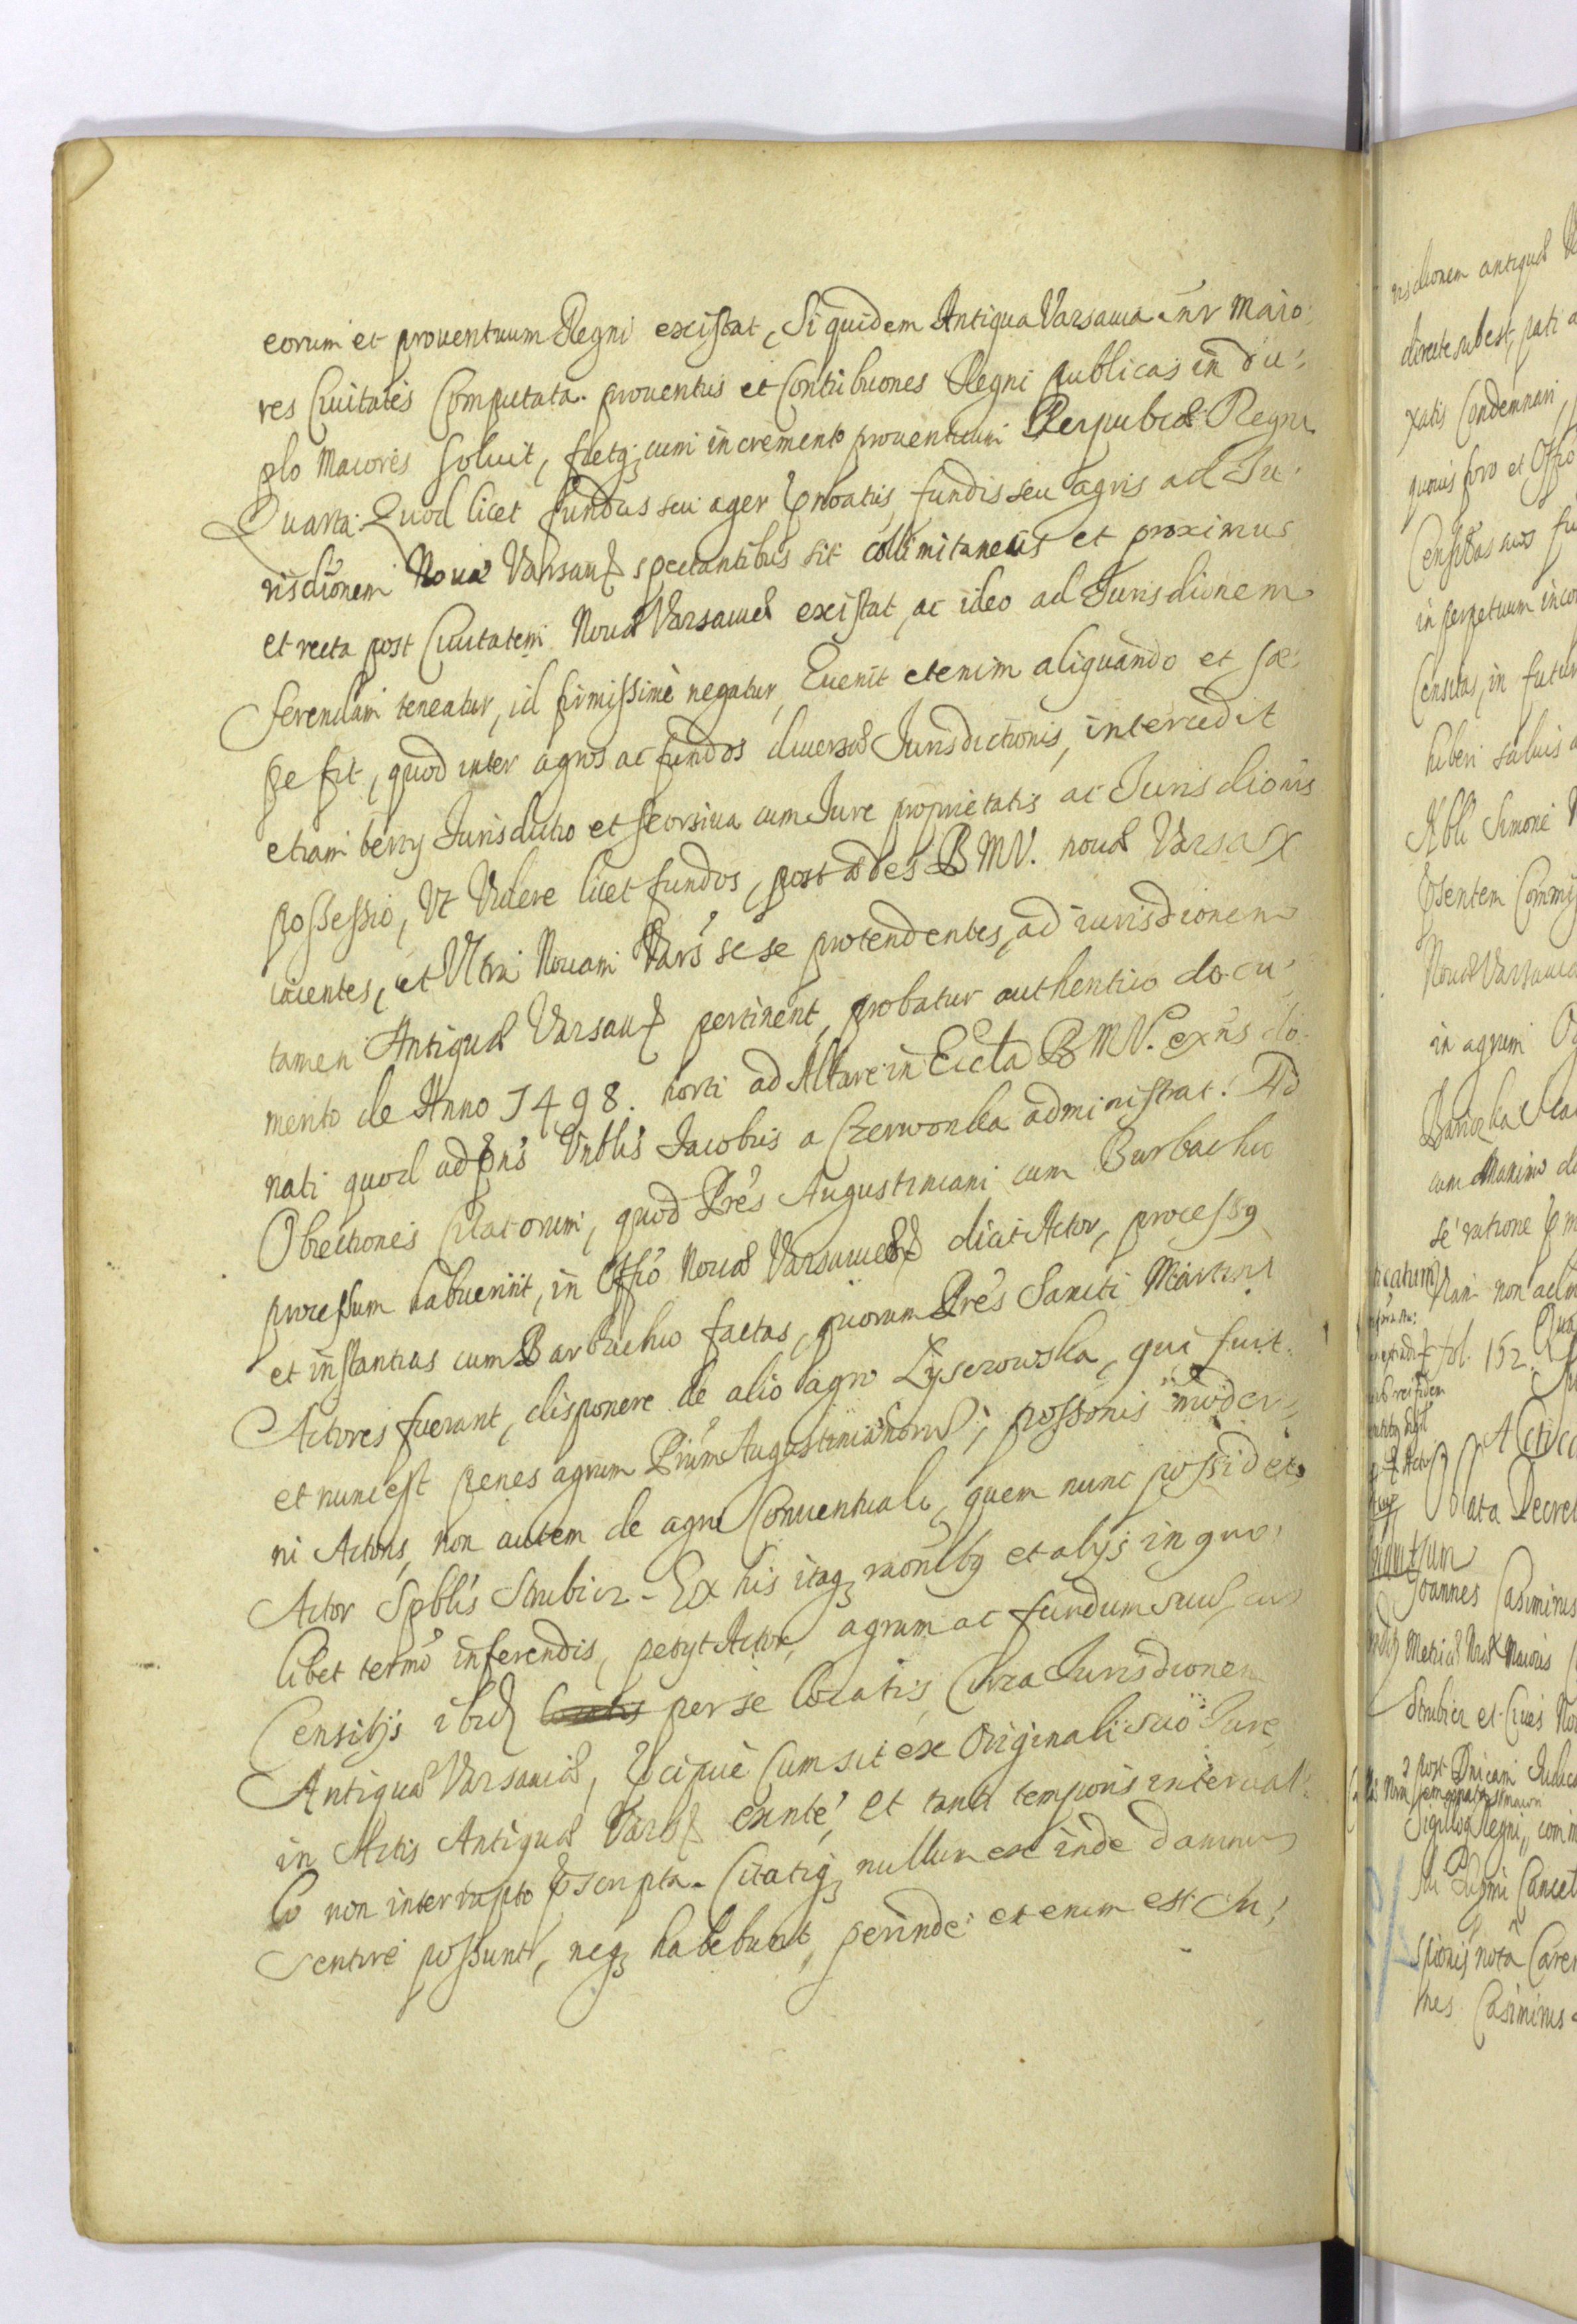 eorum et prouentuum Regni existat, Siquidem Antiqua Varsauia inr Maio:
res Ciuitates Computata prouentus et Contribuones Regni publicas in du:
plo Maiores soluit, fietq cum incremento prouentuum Reipublicæ Regni
Quarta. Quod licet fundus seu ager pnoatus, fundis seu agris ad Iu:
risdionem Nouæ Varsauię spectantibus sit collimitaneus et proximus
et recta post Ciuitatem Nouæ Varsauiæ existat, ac ideo ad Iurisdionem
ferendam teneatur, id firmissimè negatur, Euenit etenim aliquando et sæ
pe fit, quod inter agros ac fundos diuersæ Iurisdictionis, intercedit
etiam Iurisdictio et seorsiua cum Iure proprietatis ac Iurisdionis
possessio, Vt Videre licet fundos, post ædes BMV. nouæ Varsa
iacentes, et Vltra Nouam Vars sese protendentes, ad iurisdionem
tamen Antiquæ Varsauię pertinent, probatur authentico docu:
mento de Anno 1498. horti ad Altare in Eccla BMV. exns do:
nati quod ad pns Vnblis Iacobus a Czerwonka administrat. Ad
Obiectiones Citatorum, quod Pres Augustiniani cum Burbachio
processum habuerint, in Offio Nouæ Varsauiæ dicit Actor, processq
et instantias cum Barbachio factas, quorum Pres Sancti Martini
Actores fuerant, disponere de alio agro Lyserowska, qui fuit
et nunc est penes agrum Prum Augustinianorum, possonis moder:
ni Actoris, non autem de agro Conuentuali, quem nunc possidet
Actor Spblis Strubicz. Ex his itaq raonibq et alijs in quo:
libet termo inferendis, petijt Actor, agrum ac fundum suum cum
Censitijs ibid per se locatis, Circa Iurisdionem
Antiquæ Varsauiæ, pcipuè Cum sit ex Originali suo Iure
in Actis Antiquæ Vars exnte, et tanti temporis interual:
lo non interrupto pscripta. Citatiq nullum exinde damnum
sentire possunt, neq habebunt, perinde etenim est Ciu:
risdionem antiquæ
directe subest, pati
xatis Condemnari,
quouis foro et Offio
Censitas suos
in perpetuum
Censitas, in
hiberi saluis
Nbli Simone
psentem
Nouæ Varsauia
in agrum
cum Maximo
se ratione
Nam non
fol. 152.
Oblata Decret
Joannes Casimirus
Strubicz et Ciues
Regni
nota
Casimirus